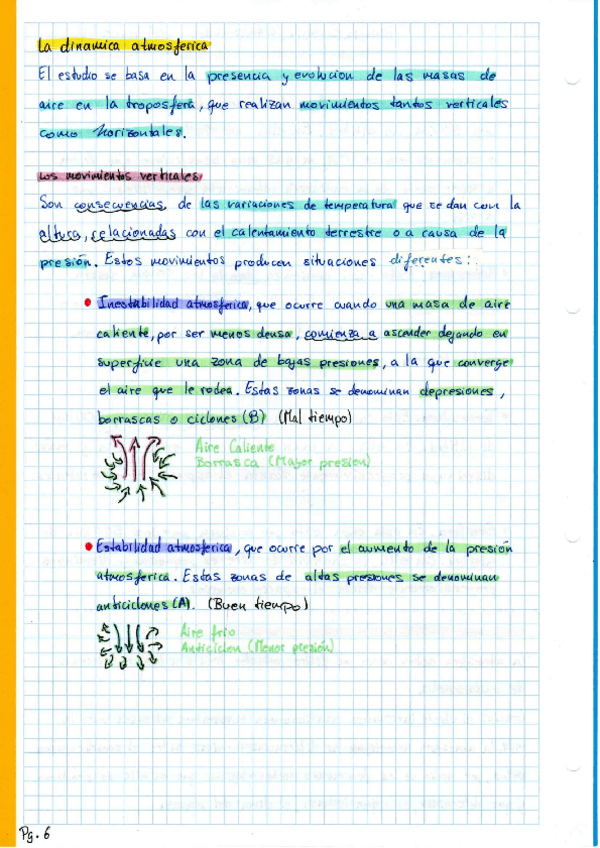 La dinamica atmosferica
El estudio se basa en la presencia y evolucion de las masas de
aire en la troposfera, que realizan movimientos tantos verticales
como horizontales.
Los movimientos verticales
Son consecuencias de las variaciones de temperatura que se dan con la
altura, relacionadas con el calentamiento terrestre o a causa de la
presión. Estos movimientos producen situaciones diferentes:
Inestabilidad atmosferica, que ocurre cuando una masa de aire
caliente, por ser menos densa, comienza a ascender dejando en
superficie una zona de bajas presiones, a la que converge
el aire que le rodea. Estas zonas se denominan depresiones,
borrascas o ciclones (B) (Mal tiempo)
Aire Caliente
Borrasca (Mayor presion)
Estabilidad atmosferica, que ocurre por el aumento de la presión
atmosferica. Estas zonas de altas presiones se denominan
anticiclones (A). (Buen tiempo)
Aire frio
Anticiclon (Menor presión)
Pg. 6